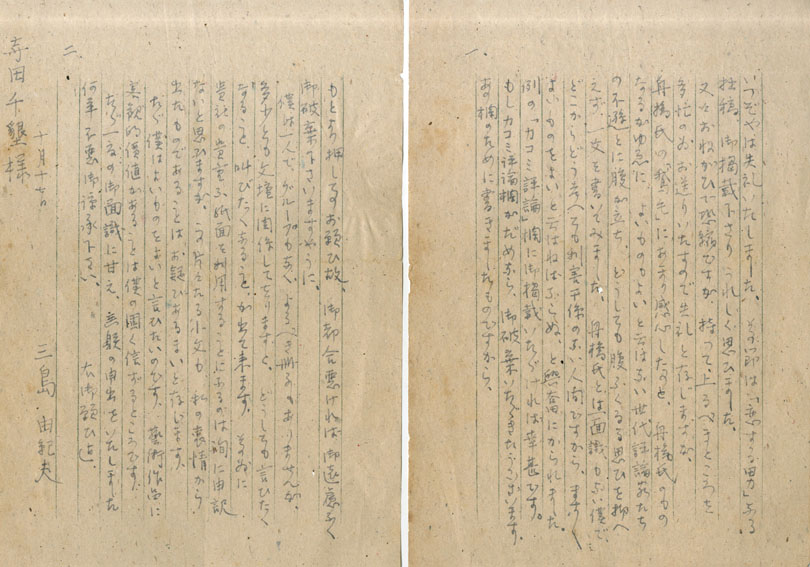 一、
いつぞやは失礼いたしました。その節は「恋する男」なる
拙稿、御掲載下さり うれしく思ひました。
又々おねがひで恐縮ですが、持って上るべきところを
多忙のためお送りいたすので失礼と存じますが、
舟橋氏の「鵞毛」にあまり感心したのと、舟橋氏のもの
なるがゆゑに、よいものもよいと云はない世代評論家たち
の不遜とに腹が立ち、どうしても腹ふくるる思ひを抑へ
えず、一文を書いてみました。舟橋氏とは面識もない僕で、
どこからどう考へても利害干係のない人間ですから、ますます
よいものをよいと云はねばならぬ、と興奮にかられました。
例の「カコミ評論」欄に御掲載いただければ幸甚です。
もしカコミ評論欄がだめなら、御破棄いただきたうございます。
あの欄のために書きましたものですから。
二、
もとより押してのお願ひ故、御都合悪ければ御遠慮なく
御破棄下さいますやうに。
僕は一人で、グループもなく、よるべき冊子もありませんが、
多少とも文壇に関係してをりますと、どうしても言ひたく
なること、叫びたくなること、が出て来ます。そのために
貴社の貴重な紙面を利用することになるのは洵に申訳
ないと思ひますが、この片々たる小文も、私の衷情から
出たものであることは お疑ひあるまいと存じます。
ただ僕はよいものをよいと言ひたいのです。藝術作品に
客観的価値があることは僕の固く信ずるところです。
ただ一度の御面識に甘え、無躾の申出をいたしました
何卒不悪御諒承下さい。 右御願ひ迄。
三島由紀夫
十月十七日
寺田千墾様